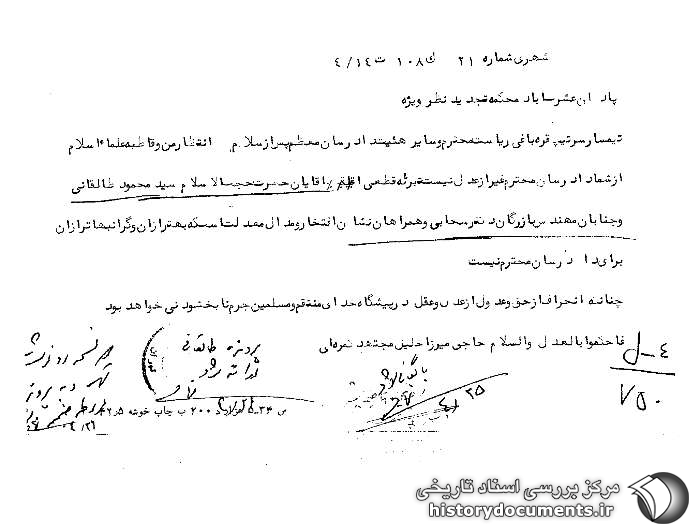 شهری شماره ۲۱ ك ۱۰۸ ت ۴/۱۴
پادگان عشرت‌اباد محکمه تجدید نظر ویژه
تیمسار سرتیپ قره‌باغی ریاست محترم و سایر هیئت دادرسان معظم پس از سلام انتظار من و قاطبه علماء اسلام
از شما دادرسان محترم غیر از عدل نیست تبرئه قطعی اقایان حضرت حجت الاسلام سید محمود طالقانی
و جنابان مهندس بازرگان دکتر سحابی و همراهان نشان افتخار و مدال معدلت است که بهتر از ان و گرانبهاتر از ان
برای دادرسان محترم نیست
چنانچه انحراف از حق و عدول از عدل و عقل در پیشگاه خدای منتقم و مسلمین جرم نابخشودنی خواهد بود
فاحکموا بالعدل والسلام حاجی میرزا خلیل مجتهد کمره‌ای
پرونده طالقانی
بایگانی شود
۴/۲۵
۷۵۰
چاپ خوشه
مرکز بررسی اسناد تاریخی
historydocuments.ir